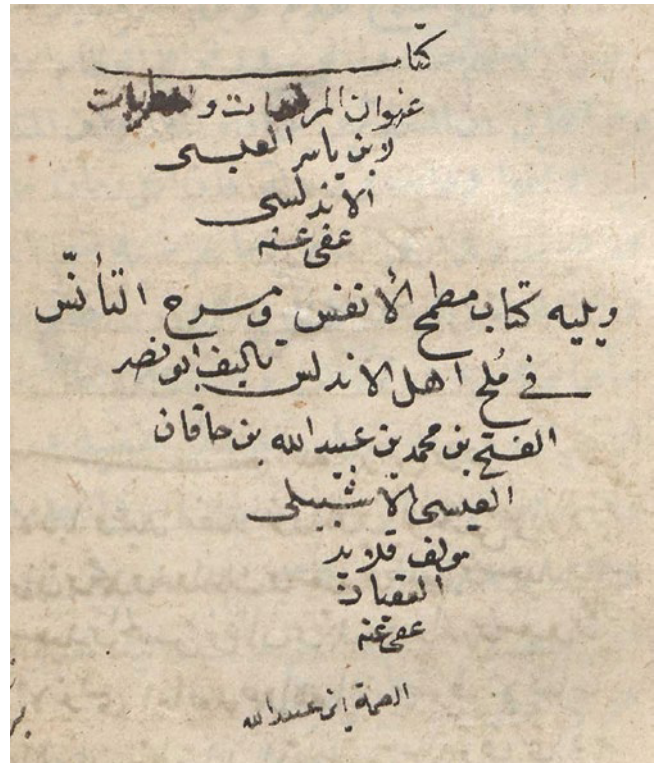 كتاب
عنوان المرقصات والمطربات
لابن ياسر العبسى
الاندلسى
عفى عنه
ويليه كتاب مطمح الأنفس ومسرح التأنّس
في مُلح اهل الاندلس تاليف ابو نصر
الفتح بن محمد بن عبيد الله بن خاقان
القيسى الاشبيلى
مولف قلايد
العقيان
عفى عنه
عبيد الله